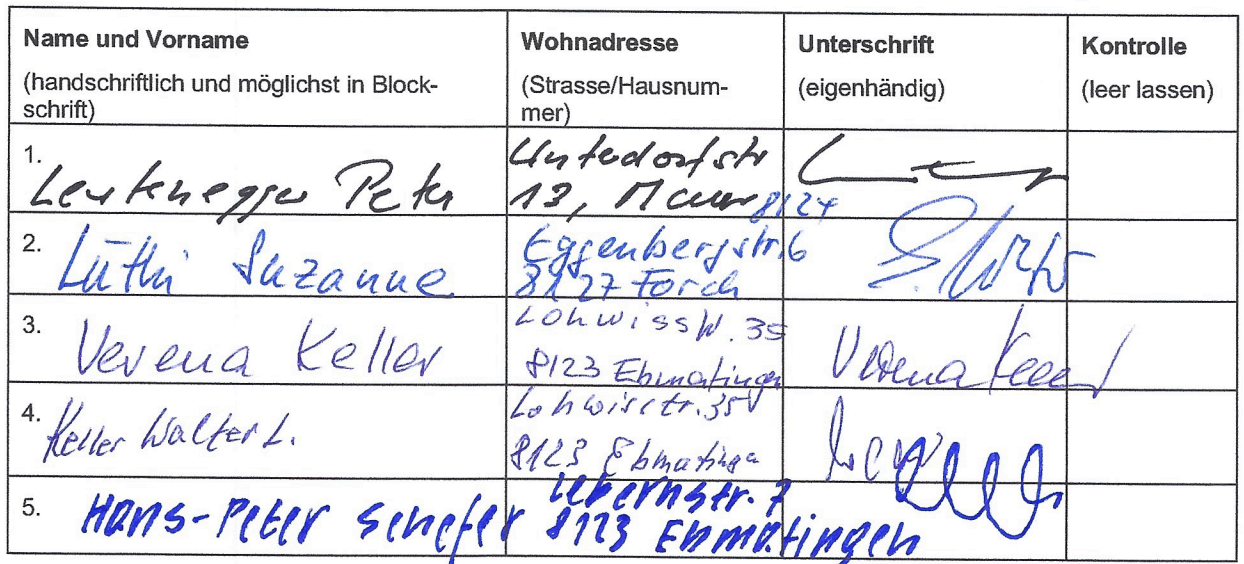 Name und Vorname
(handschriftlich und möglichst in Block-
schrift)
Wohnadresse
(Strasse/Hausnum-
mer)
Unterschrift
(eigenhändig)
Kontrolle
(leer lassen)
1.
Leutenegger Peter
Unterdorfstr
13, Maur 8124
2.
Lüthi Suzanne
Eggenbergstr. 6
8127 Forch
3.
Verena Keller
Lohwissstr. 35
8123 Ebmatingen
Verena Keller
4.
Keller Walter L.
Lohwisstr. 35
8123 Ebmatingen
5.
Hans-Peter Schefer
Lebernstr. 7
8123 Ebmatingen